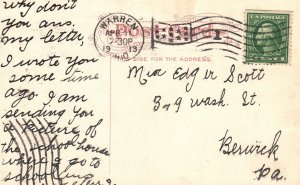 why don't
you ans.
my letter,
I wrote you
some time
ago. I am
sending you
a picture of
the school house
where I go to
school
WARREN
APR
7-30P
19 13
OHIO
1
POST CARD
SIDE FOR THE ADDRESS.
U.S. POSTAGE
Miss Edgar Scott
319 Wash. St.
Berwick
Pa.